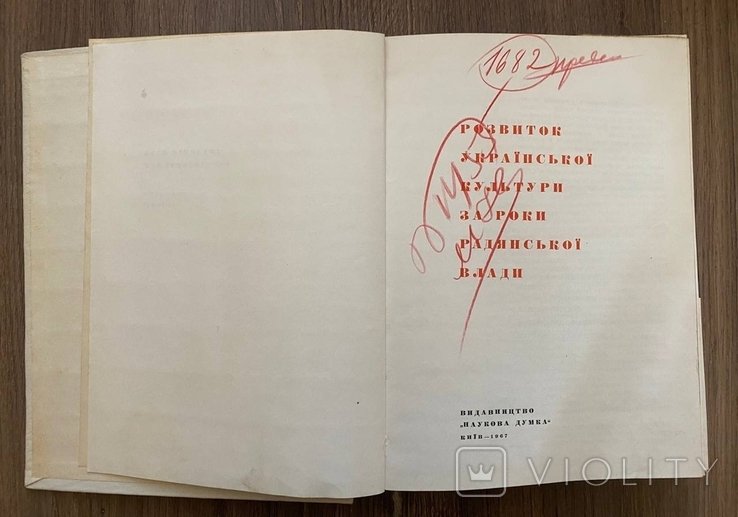 1682
РОЗВИТОК
УКРАЇНСЬКОЇ
КУЛЬТУРИ
ЗА РОКИ
РАДЯНСЬКОЇ
ВЛАДИ
ВИДАВНИЦТВО
„НАУКОВА ДУМКА“
КИЇВ—1967
VIOLITY